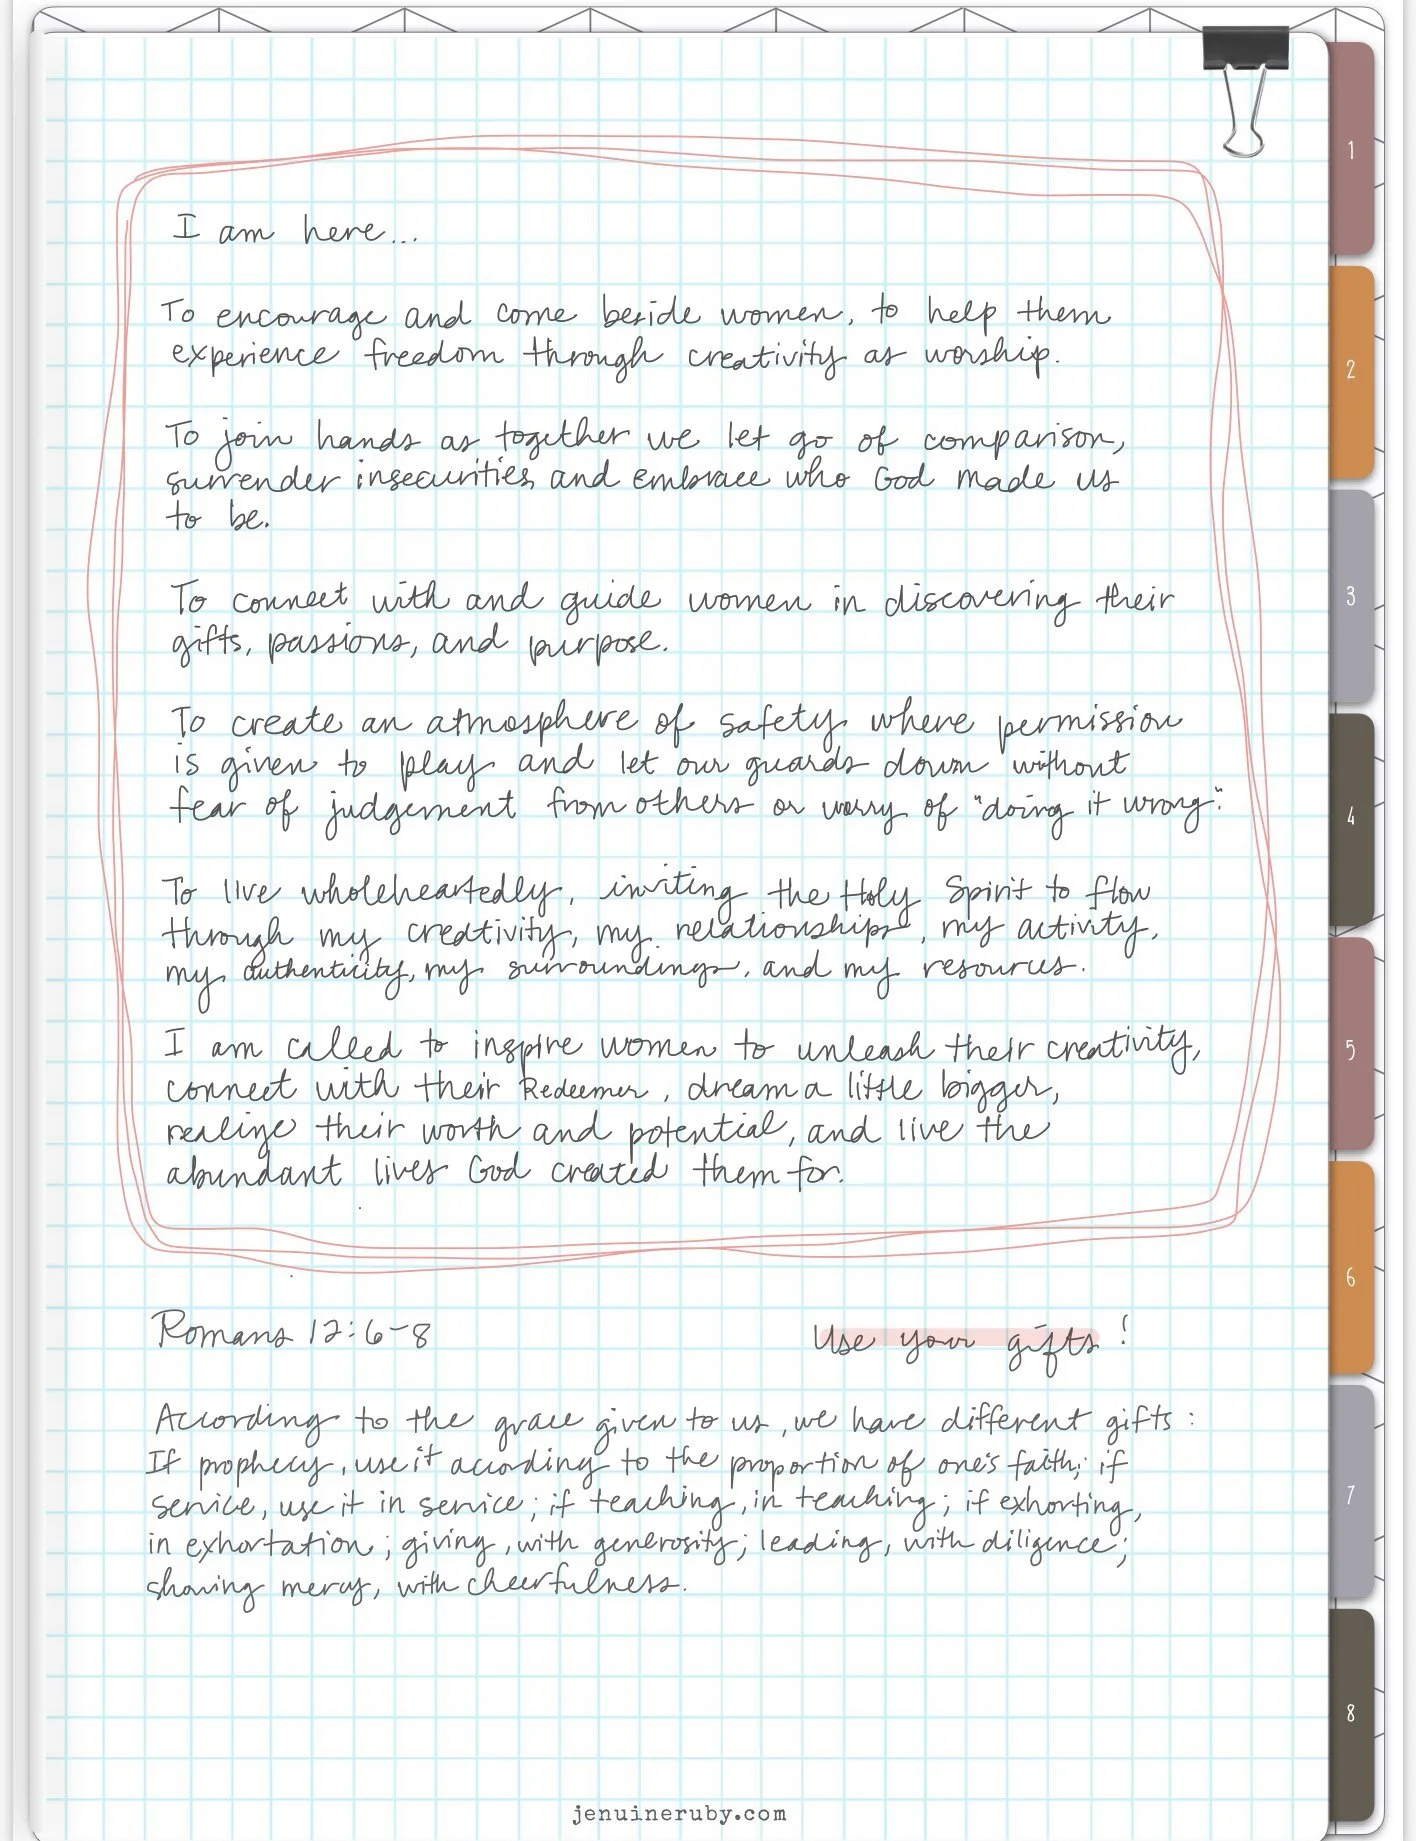 I am here...
To encourage and come beside women, to help them
experience freedom through creativity as worship.
To join hands as together we let go of comparison,
surrender insecurities and embrace who God made us
to be.
To connect with and guide women in discovering their
gifts, passions, and purpose.
To create an atmosphere of safety where permission
is given to play and let our guards down without
fear of judgement from others or worry of "doing it wrong".
To live wholeheartedly, inviting the Holy Spirit to flow
through my creativity, my relationships, my activity,
my authenticity, my surroundings, and my resources.
I am called to inspire women to unleash their creativity,
connect with their Redeemer, dream a little bigger,
realize their worth and potential, and live the
abundant lives God created them for.
Romans 12:6-8 Use your gifts!
According to the grace given to us, we have different gifts:
If prophecy, use it according to the proportion of one's faith; if
service, use it in service; if teaching, in teaching; if exhorting,
in exhortation; giving, with generosity; leading, with diligence;
showing mercy, with cheerfulness.
1
2
3
4
5
6
7
8
jenuineruby.com